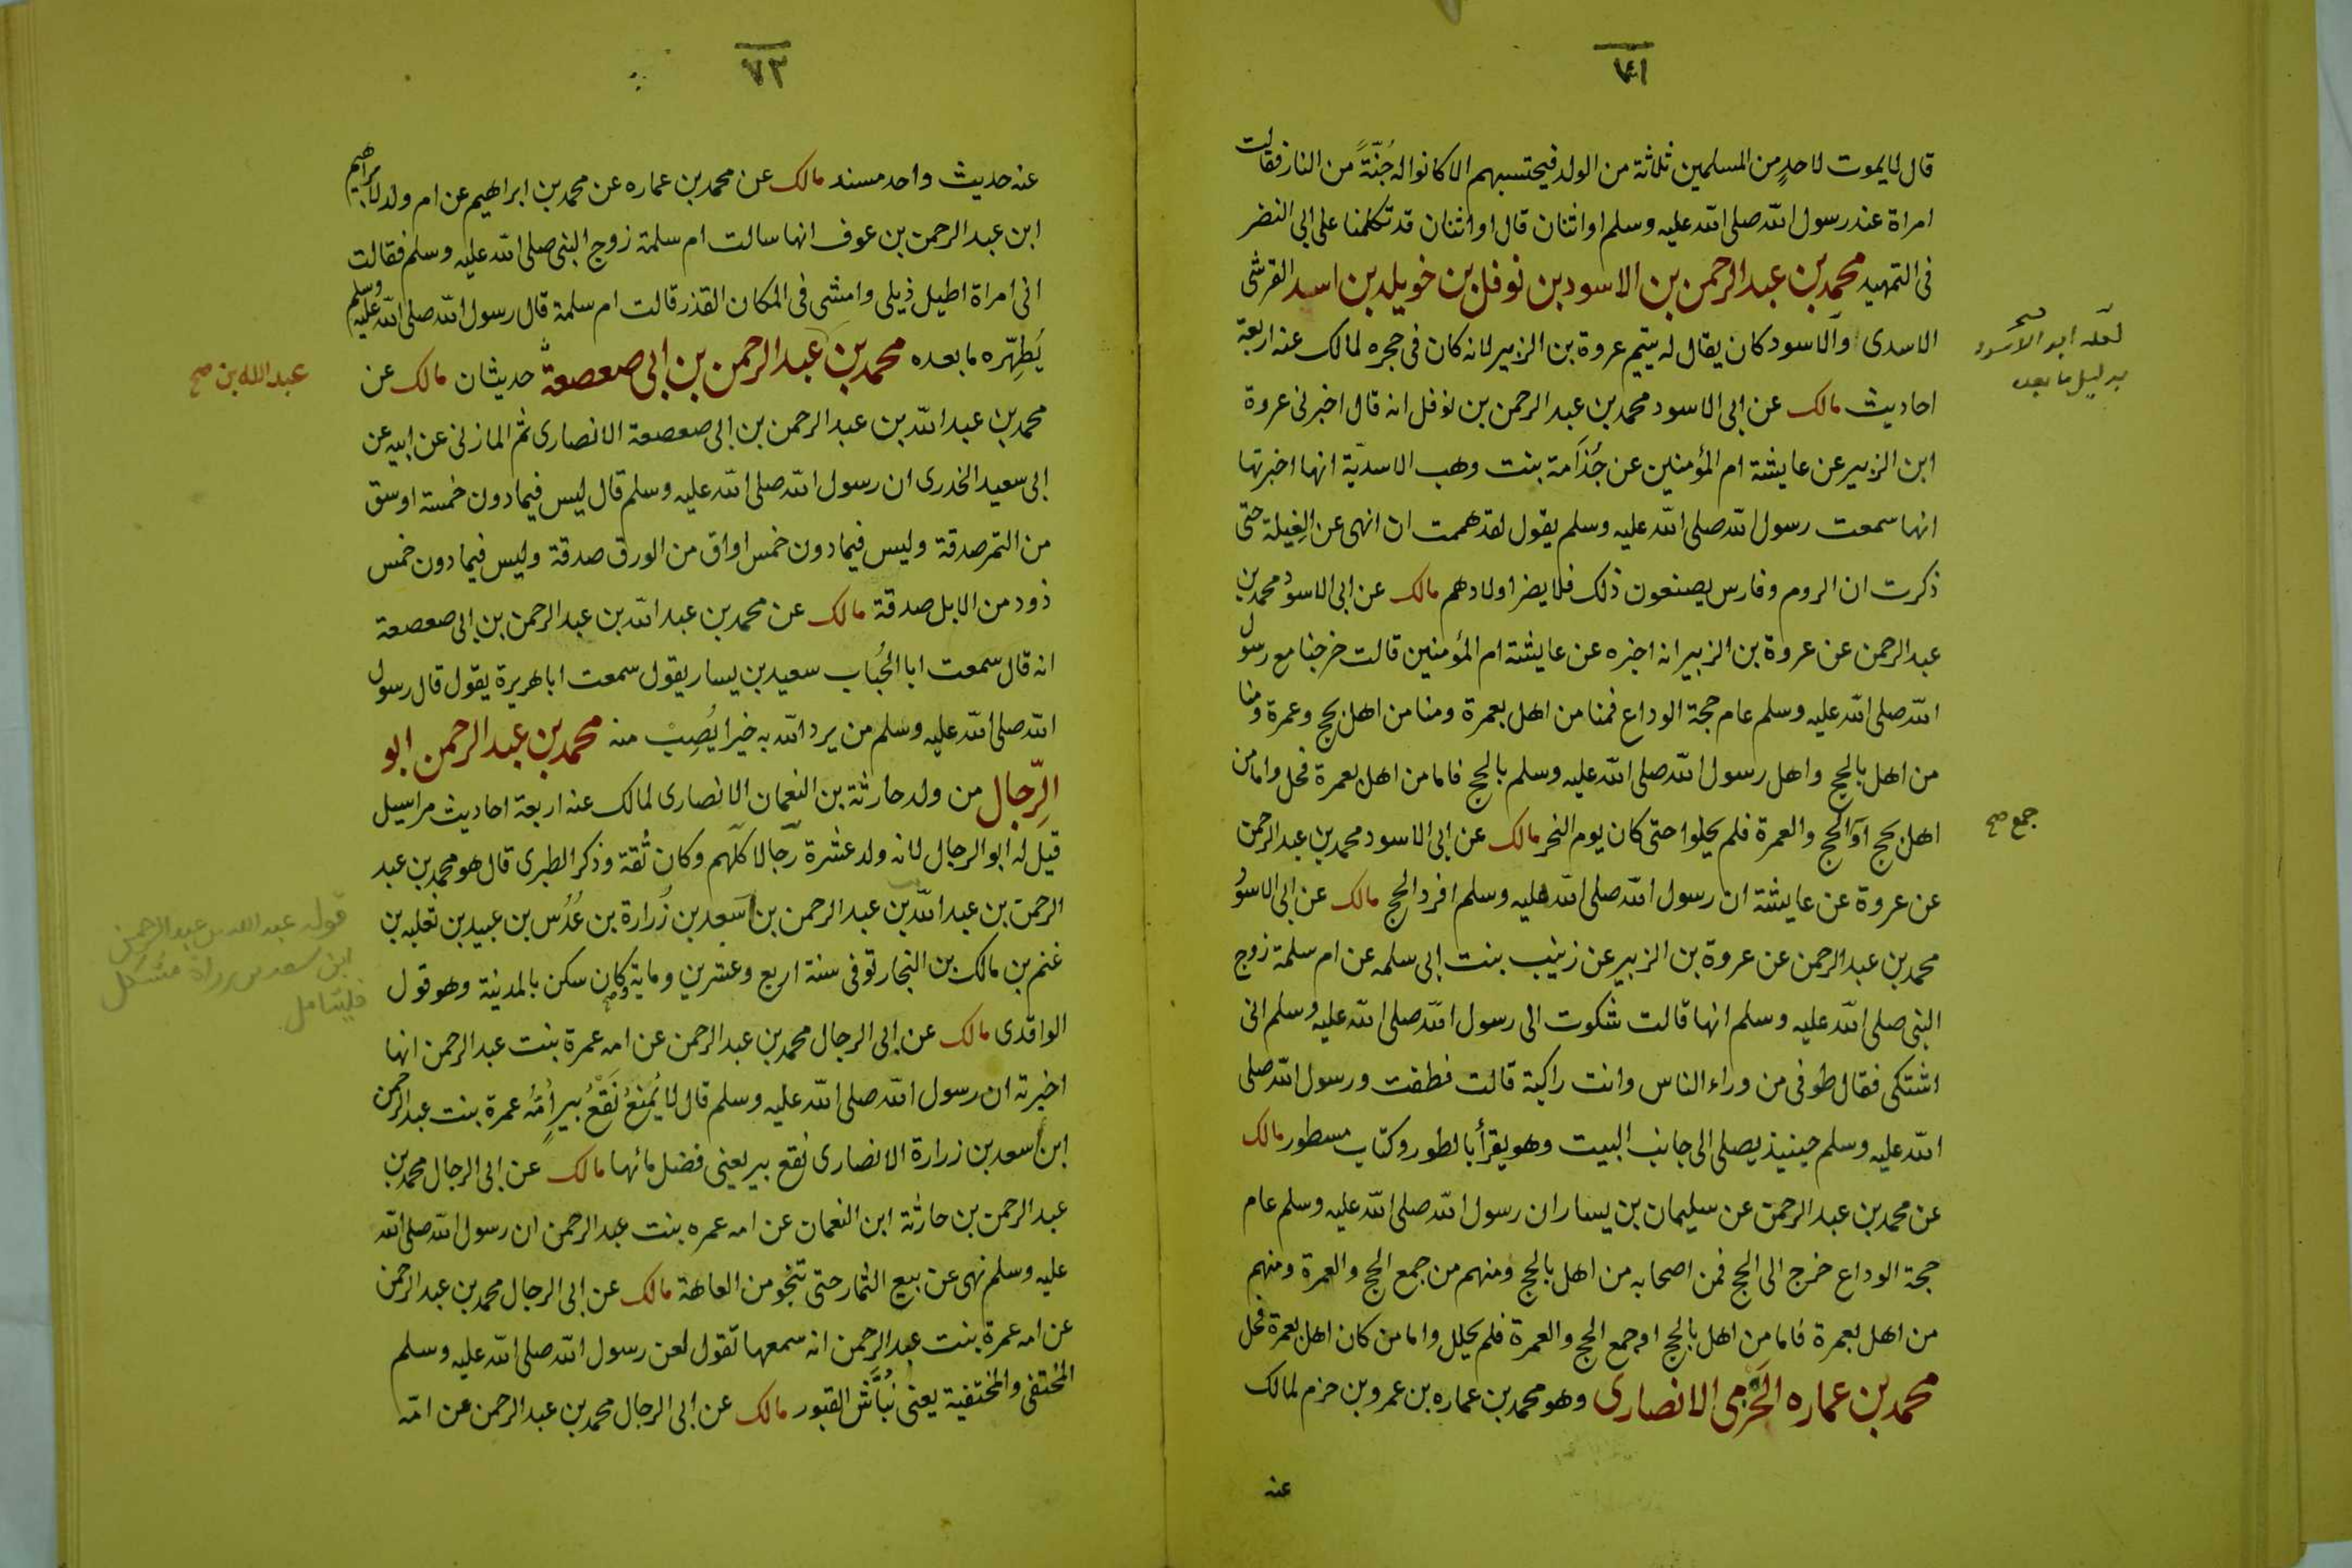 ٧١
قال لا يموت لاحدٍ من المسلمين ثلاثة من الولد فيحتسبهم الا كانوا له جُنّةً من النار فقالت
امراة عند رسول الله صلى الله عليه وسلم او اثنان قال او اثنان قد تكلمنا على ابى النضر
فى التمهيد محمد بن عبد الرحمن بن الاسود بن نوفل بن خويلد بن اسيد القرشى
الاسدى والاسود كان يقال له يتيم عروة بن الزبير لانه كان فى حجره لمالك عنه اربعة
احاديث مالك عن ابى الاسود محمد بن عبد الرحمن بن نوفل انه قال اخبرنى عروة
ابن الزبير عن عايشة ام المؤمنين عن جُذَامة بنت وهب الاسديّة انها اخبرتها
انها سمعت رسول الله صلى الله عليه وسلم يقول لقد هممت ان انهى عن الغِيلة حتى
ذكرت ان الروم وفارس يصنعون ذلك فلا يضر اولادهم مالك عن ابى الاسود محمد بن
عبد الرحمن عن عروة بن الزبير انه اخبره عن عايشة ام المؤمنين قالت خرجنا مع رسول
الله صلى الله عليه وسلم عام حجة الوداع فمنا من اهل بعمرة ومنا من اهل بحج وعمرة ومنا
من اهل بالحج واهل رسول الله صلى الله عليه وسلم بالحج فاما من اهل بعمرة فحل واما من
اهل بحج او الحج والعمرة فلم يحلوا حتى كان يوم النحر مالك عن ابى الاسود محمد بن عبد الرحمن
عن عروة عن عايشة ان رسول الله صلى الله عليه وسلم افرد الحج مالك عن ابى الاسود
محمد بن عبد الرحمن عن عروة بن الزبير عن زينب بنت ابى سلمه عن ام سلمة زوج
النبى صلى الله عليه وسلم انها قالت شكوت الى رسول الله صلى الله عليه وسلم انى
اشتكى فقال طوفى من وراء الناس وانت راكبة قالت فطفت ورسول الله صلى
الله عليه وسلم حينيذ يصلى الى جانب البيت وهو يقرأ بالطور وكتاب مسطور مالك
عن محمد بن عبد الرحمن عن سليمان بن يسار ان رسول الله صلى الله عليه وسلم عام
حجة الوداع خرج الى الحج فمن اصحابه من اهل بالحج ومنهم من جمع الحج والعمرة ومنهم
من اهل بعمرة فاما من اهل بالحج او جمع الحج والعمرة فلم يحلل واما من كان اهل بعمرة فحل
محمد بن عماره الحَزْمى الانصارى وهو محمد بن عماره بن عمرو بن حزم لمالك
عنه
لعله ابو الاسود صح
بدليل ما بعده
جمع صح
٧٢
عنه حديث واحد مسند مالك عن محمد بن عماره عن محمد بن ابراهيم عن ام ولد لابراهيم
ابن عبد الرحمن بن عوف انها سالت ام سلمة زوج النبى صلى الله عليه وسلم فقالت
انى امراة اطيل ذيلى وامشى فى المكان القذر قالت ام سلمة قال رسول الله صلى الله عليه وسلم
يُطهّره ما بعده محمد بن عبد الرحمن بن ابى صعصعة حديثان مالك عن
محمد بن عبد الله بن عبد الرحمن بن ابى صعصعة الانصارى ثم المازنى عن ابيه عن
ابى سعيد الخدرى ان رسول الله صلى الله عليه وسلم قال ليس فيما دون خمسة اوسق
من التمر صدقة وليس فيما دون خمس اواق من الورق صدقة وليس فيما دون خمس
ذود من الابل صدقة مالك عن محمد بن عبد الله بن عبد الرحمن بن ابى صعصعة
انه قال سمعت ابا الحُباب سعيد بن يسار يقول سمعت ابا هريرة يقول قال رسول
الله صلى الله عليه وسلم من يرد الله به خيرا يُصِبْ منه محمد بن عبد الرحمن ابو
الرِّجال من ولد حارثة بن النعمان الانصارى لمالك عنه اربعة احاديث مراسيل
قيل له ابو الرجال لانه ولد عشرة رجالا كلهم وكان ثقة وذكر الطبرى قال هو محمد بن عبد
الرحمن بن عبد الله بن عبد الرحمن بن اسعد بن زُرارة بن عُدُس بن عبيد بن ثعلبه بن
غنم بن مالك بن النجار توفى سنة اربع وعشرين وماية وكان سكن بالمدينة وهو قول
الواقدى مالك عن ابى الرجال محمد بن عبد الرحمن عن امه عمرة بنت عبد الرحمن انها
اخبرته ان رسول الله صلى الله عليه وسلم قال لا يُمنعُ نَقْعُ بيرٍ اُمّه عمرة بنت عبد الرحمن
ابن اسعد بن زرارة الانصارى نقع بير يعنى فضل مائها مالك عن ابى الرجال محمد بن
عبد الرحمن بن حارثة ابن النعمان عن امه عمره بنت عبد الرحمن ان رسول الله صلى الله
عليه وسلم نهى عن بيع الثمار حتى تنجو من العاهة مالك عن ابى الرجال محمد بن عبد الرحمن
عن امه عمرة بنت عبد الرحمن انه سمعها تقول لعن رسول الله صلى الله عليه وسلم
المختفى والمختفية يعنى نُبّاش القبور مالك عن ابى الرجال محمد بن عبد الرحمن عن امّه
عبد الله بن صح
قوله عبد الله بن عبد الرحمن
ابن سعد بن زرارة مشكل
فليتامل